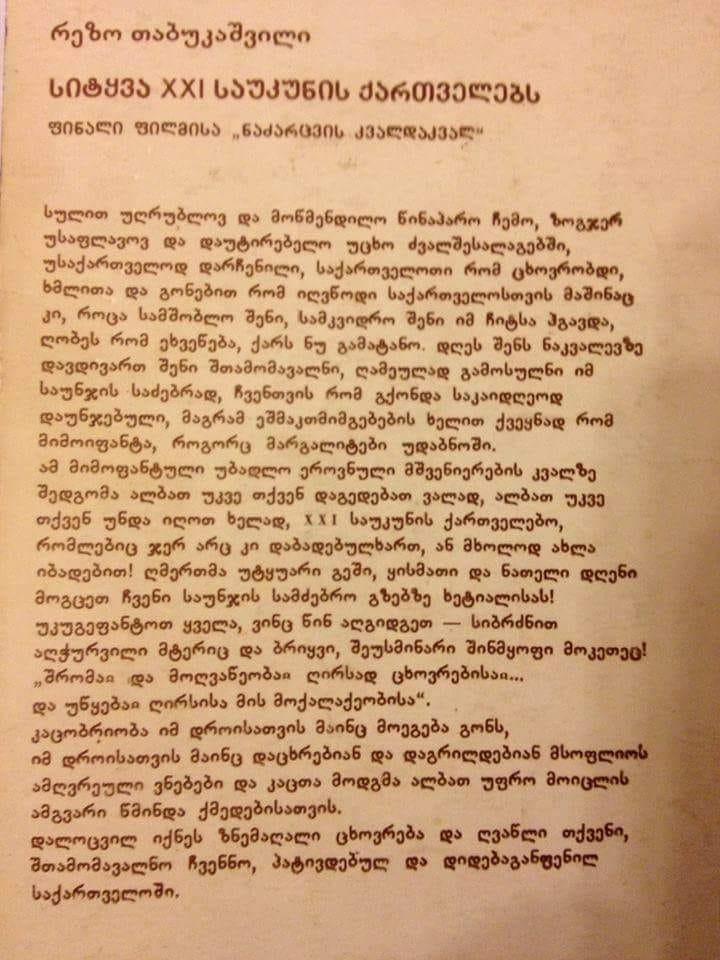 რეზო თაბუკაშვილი
სიტყვა XXI საუკუნის ქართველებს
ფინალი ფილმისა „ნაძარცვის კვალდაკვალ“
სულით უღრუბლოვ და მოწმენდილო წინაპარო ჩემო, ზოგჯერ
უსაფლავოვ და დაუტირებელო უცხო ძვალშესალაგებში,
უსაქართველოდ დარჩენილი, საქართველოთი რომ ცხოვრობდი,
ხმლითა და გონებით რომ იღვწოდი საქართველოსთვის მაშინაც
კი, როცა სამშობლო შენი, სამკვიდრო შენი იმ ჩიტსა ჰგავდა,
ღობეს რომ ეხვეწება, ქარს ნუ გამატანო. დღეს შენს ნაკვალევზე
დავდივართ შენი შთამომავალნი, ღამეულად გამოსულნი იმ
საუნჯის საძებრად, ჩვენთვის რომ გქონდა საკაიდღეოდ
დაუნჯებული, მაგრამ ეშმაკთმიმგებების ხელით ქვეყნად რომ
მიმოიფანტა, როგორც მარგალიტები უდაბნოში.
ამ მიმოფანტული უბადლო ეროვნული მშვენიერების კვალზე
შედგომა ალბათ უკვე თქვენ დაგედებათ ვალად, ალბათ უკვე
თქვენ უნდა იღოთ ხელად, XXI საუკუნის ქართველებო,
რომლებიც ჯერ არც კი დაბადებულხართ, ან მხოლოდ ახლა
იბადებით! ღმერთმა უტყუარი გეში, ყისმათი და ნათელი დღენი
მოგცეთ ჩვენი საუნჯის სამძებრო გზებზე ხეტიალისას!
უკუგეფანტოთ ყველა, ვინც წინ აღგიდგეთ — სიბრძნით
აღჭურვილი მტერიც და ბრიყვი, შეუსმინარი შინმყოფი მოკეთეც!
„შრომაჲ და მოღვაწეობაჲ ღირსად ცხოვრებისაჲ...
და უწყებაჲ ღირსისა მის მოქალაქეობისა“.
კაცობრიობა იმ დროისათვის მაინც მოეგება გონს,
იმ დროისათვის მაინც დაცხრებიან და დაგრილდებიან მსოფლიოს
ამღვრეული ვნებები და კაცთა მოდგმა ალბათ უფრო მოიცლის
ამგვარი წმინდა ქმედებისათვის.
დალოცვილ იქნეს ზნემაღალი ცხოვრება და ღვაწლი თქვენი,
შთამომავალნო ჩვენნო, პატივდებულ და დიდებაგანფენილ
საქართველოში.